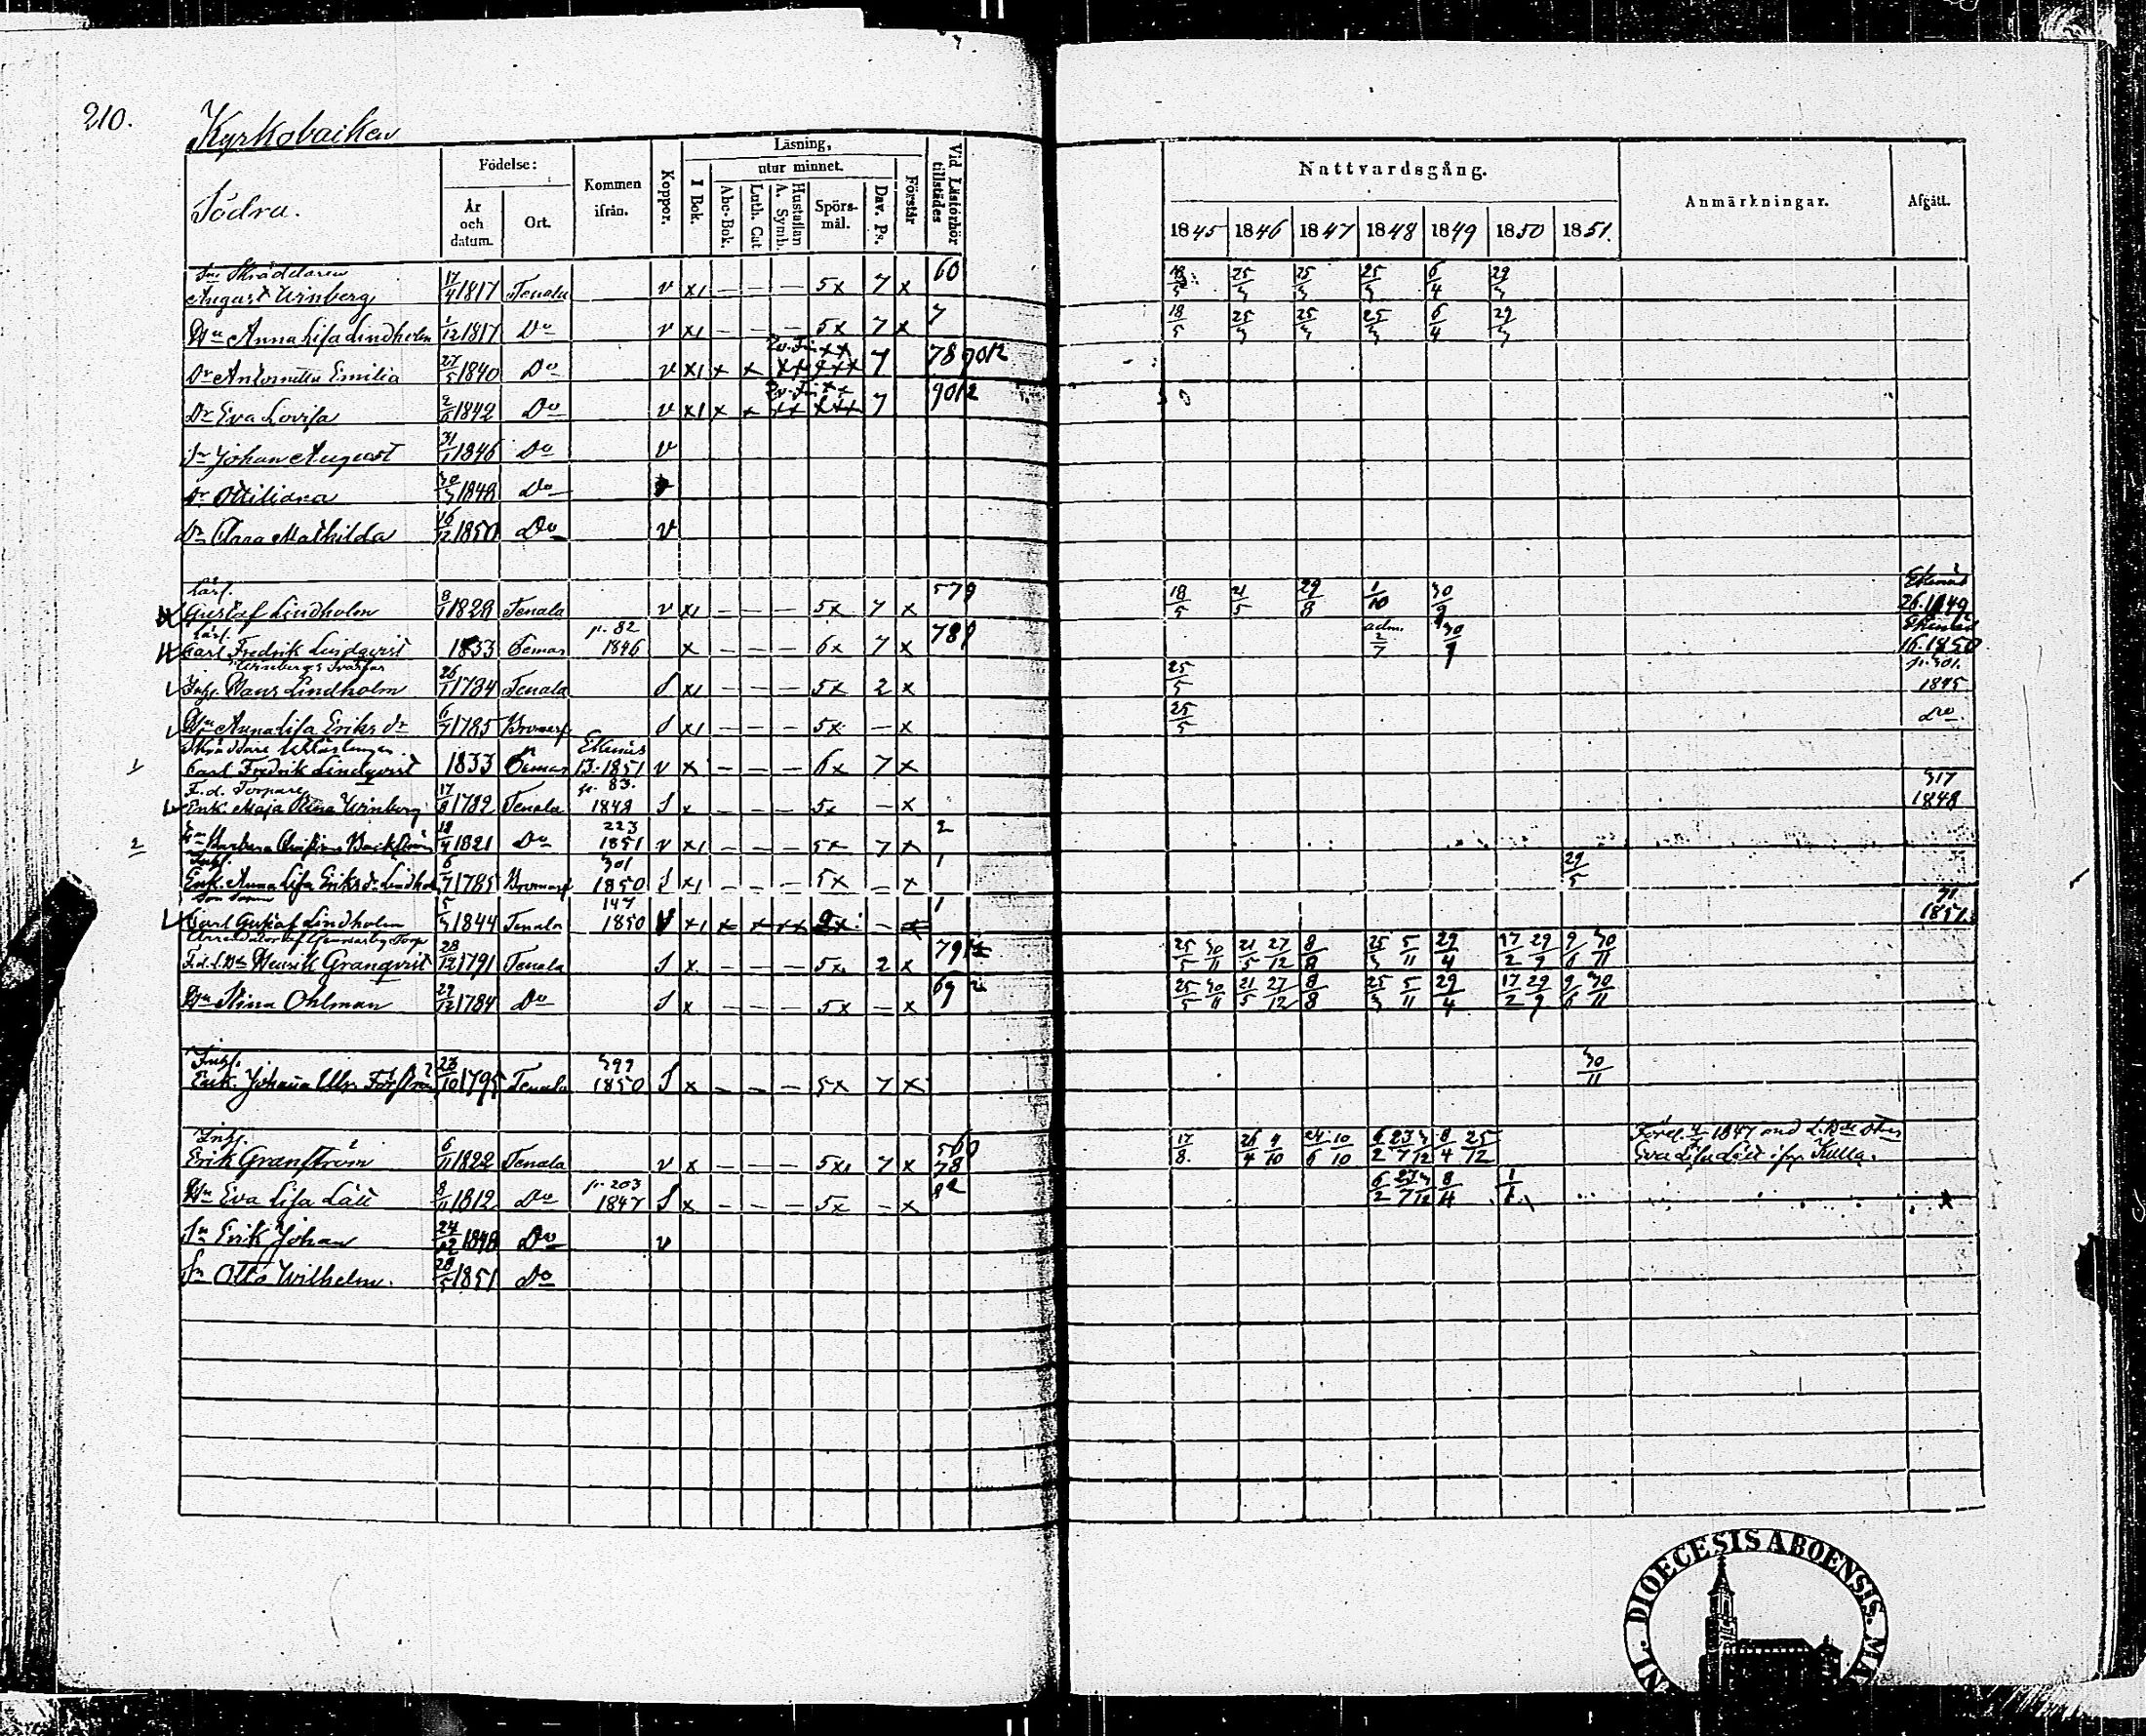 210.
Kyrkobacken
Södra.
Födelse:
År och datum.
Ort.
Kommen ifrån.
Koppor.
Läsning,
utur minnet.
I Bok.
Abc-Bok.
Luth. Cat.
Hustaflan A. Symb.
Spörsmål.
Dav. Ps.
Förstår
Vid Läsförhör tillstädes
Nattvardsgång.
1845 1846 1847 1848 1849 1850 1851.
Anmärkningar.
Afgått.
Skräddaren
August Winberg 17/4 1817 Tenala v x1 – – – 5x 7 x 60 18/5 25/3 25/3 25/3 6/4 29/3
Hu Anna Lisa Lindholm 1/12 1817 Do v x1 – – – 5x 7 x 7 18/5 25/3 25/3 25/3 6/4 29/3
Dr Antonetta Emilia 27/5 1840 Do v x1 x x 7 789012
Dr Eva Lovisa 2/6 1842 Do v x1 x x xx xxx 7 9012
Sn Johan August 31/1 1846 Do v
Dr Ottiliana 30/3 1848 Do
Dr Clara Mathilda 16/12 1850 Do v
Lärl.
Gustaf Lindholm 8/1 1828 Tenala v x1 – – – 5x 7 x 578 18/5 21/5 29/8 1/10 30/9 Ekenäs 26. 1849
Lärl. p. 82
Carl Fredrik Lindqvist 1833 1846 x – – – 6x 7 x 789 adm. 2/7 30/9 Ekenäs 16. 1850
Winbergs Svärfar
Inh. Hans Lindholm 26/1 1784 Tenala S x1 – – – 5x 2 x 25/5 p. 301. 1845
Hu Anna Lisa Eriks dr 6/7 1785 Bromarf S x1 – – – 5x – x 25/5 Do.
Skräddare
1 Carl Fredrik Lindqvist 1833 Ekenäs 13. 1851 v x – – – 6x 7 x
F. d. Torpare p. 83.
Enk. Maja Stina Winberg 17/8 1782 Tenala 1848 S x – – – 5x – x 317 1848
2 Barbara Backström 1821 Do 223 1851 v x1 – – – 5x 7 x 2
Inh. 301
Enk. Anna Lisa Eriks dr Lindholm 6/7 1785 Bromarf 1850 S x1 – – – 5x – x 1 29/5
Son Son 147
Carl Gustaf Lindholm 5/3 1844 Tenala 1850 x1 x x xx – 1 71 1851.
Arrendator af Torp
Henrik Granqvist 28/12 1791 Tenala S x – – – 5x 2 x 25/5 30/11 21/5 27/12 8/8 25/3 5/11 29/4 17/2 29/9 9/6 30/11
Hu Stina Ohlman 29/12 1784 Do S x – – – 5x – x 69 25/5 30/11 21/5 27/12 8/8 25/3 5/11 29/4 17/2 29/9 9/6 30/11
Inh. 399
Enk. Johanna Ulr. 23/10 1795 Tenala 1850 S x – – – 5x 7 x 30/11
Inh.
Erik Granström 6/11 1822 Tenala v x – – – 5x1 7 x 17/8. 26/4 4/10 24/6 10/10 8/4 25/12 1847 med
Eva Lisa Lätt ifr. Kulla.
Hu Eva Lisa Lätt 8/11 1812 Do p. 203 1847 S x – – – 5x – x
Sn Erik Johan 24/12 1848 Do v
Sn Otto Wilhelm. 28/5 1851 Do
NL. DIOECESIS ABOENSIS. MA